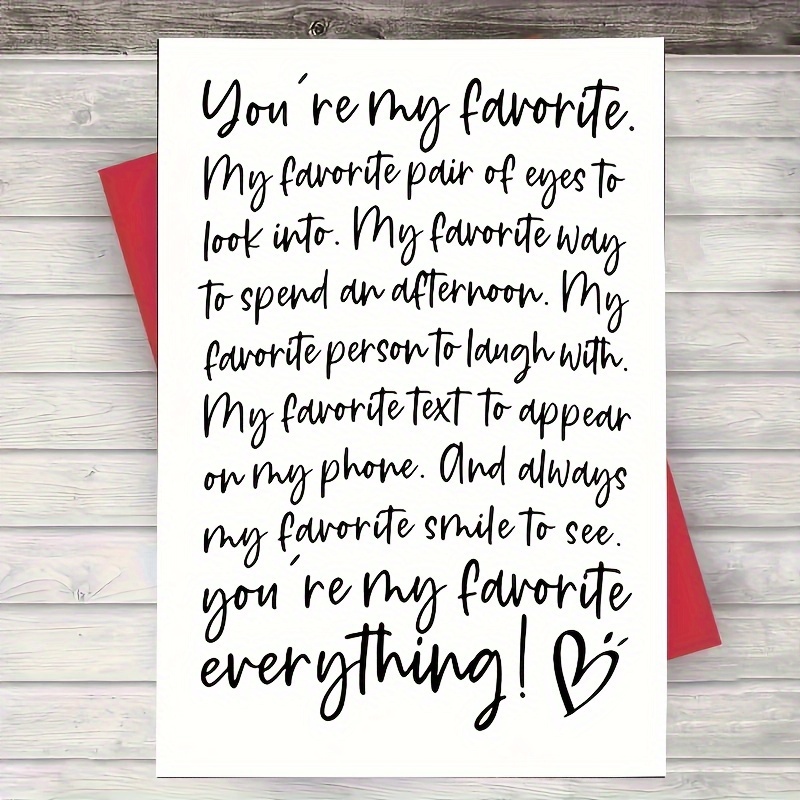 You're my favorite.
My favorite pair of eyes to
look into. My favorite way
to spend an afternoon. My
favorite person to laugh with.
My favorite text to appear
on my phone. And always
my favorite smile to see.
you're my favorite
everything!